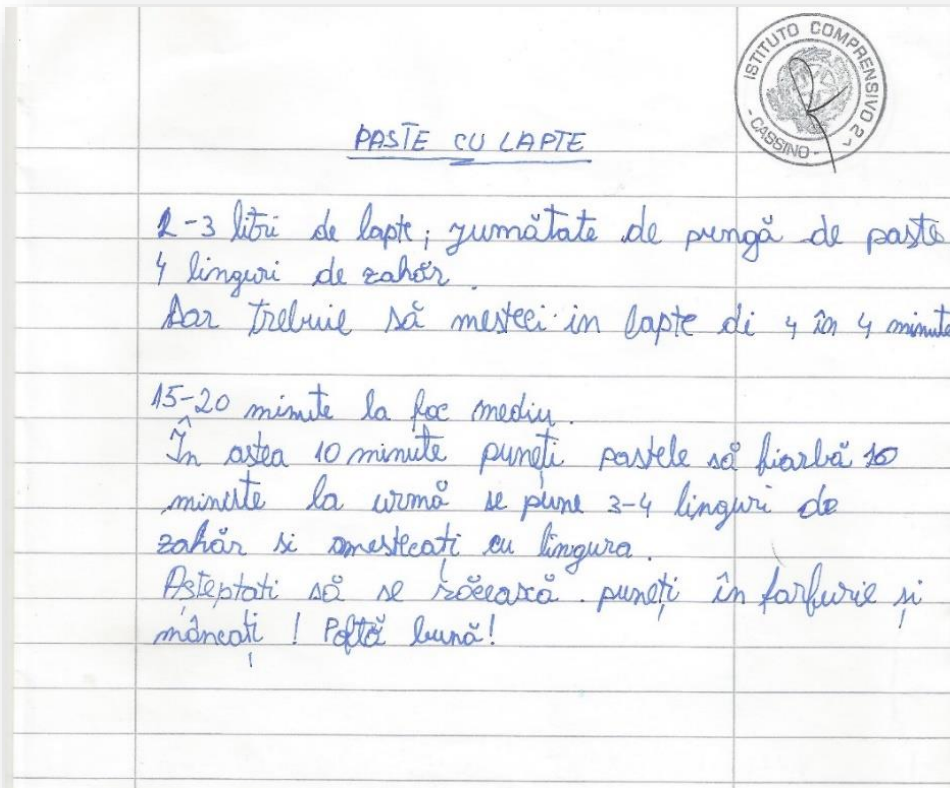 ISTITUTO COMPRENSIVO 2^
- CASSINO -
PASTE CU LAPTE
2-3 litri de lapte; jumătate de pungă de paste
4 linguri de zahăr.
Dar trebuie să mesteci in lapte di 4 în 4 minute
15-20 minute la foc mediu.
În astea 10 minute puneți pastele să fiarbă 10
minute la urmă se pune 3-4 linguri de
zahăr si amestecați cu lingura.
Așteptati să se răcească. puneți în farfurie și
mâncați! Poftă bună!